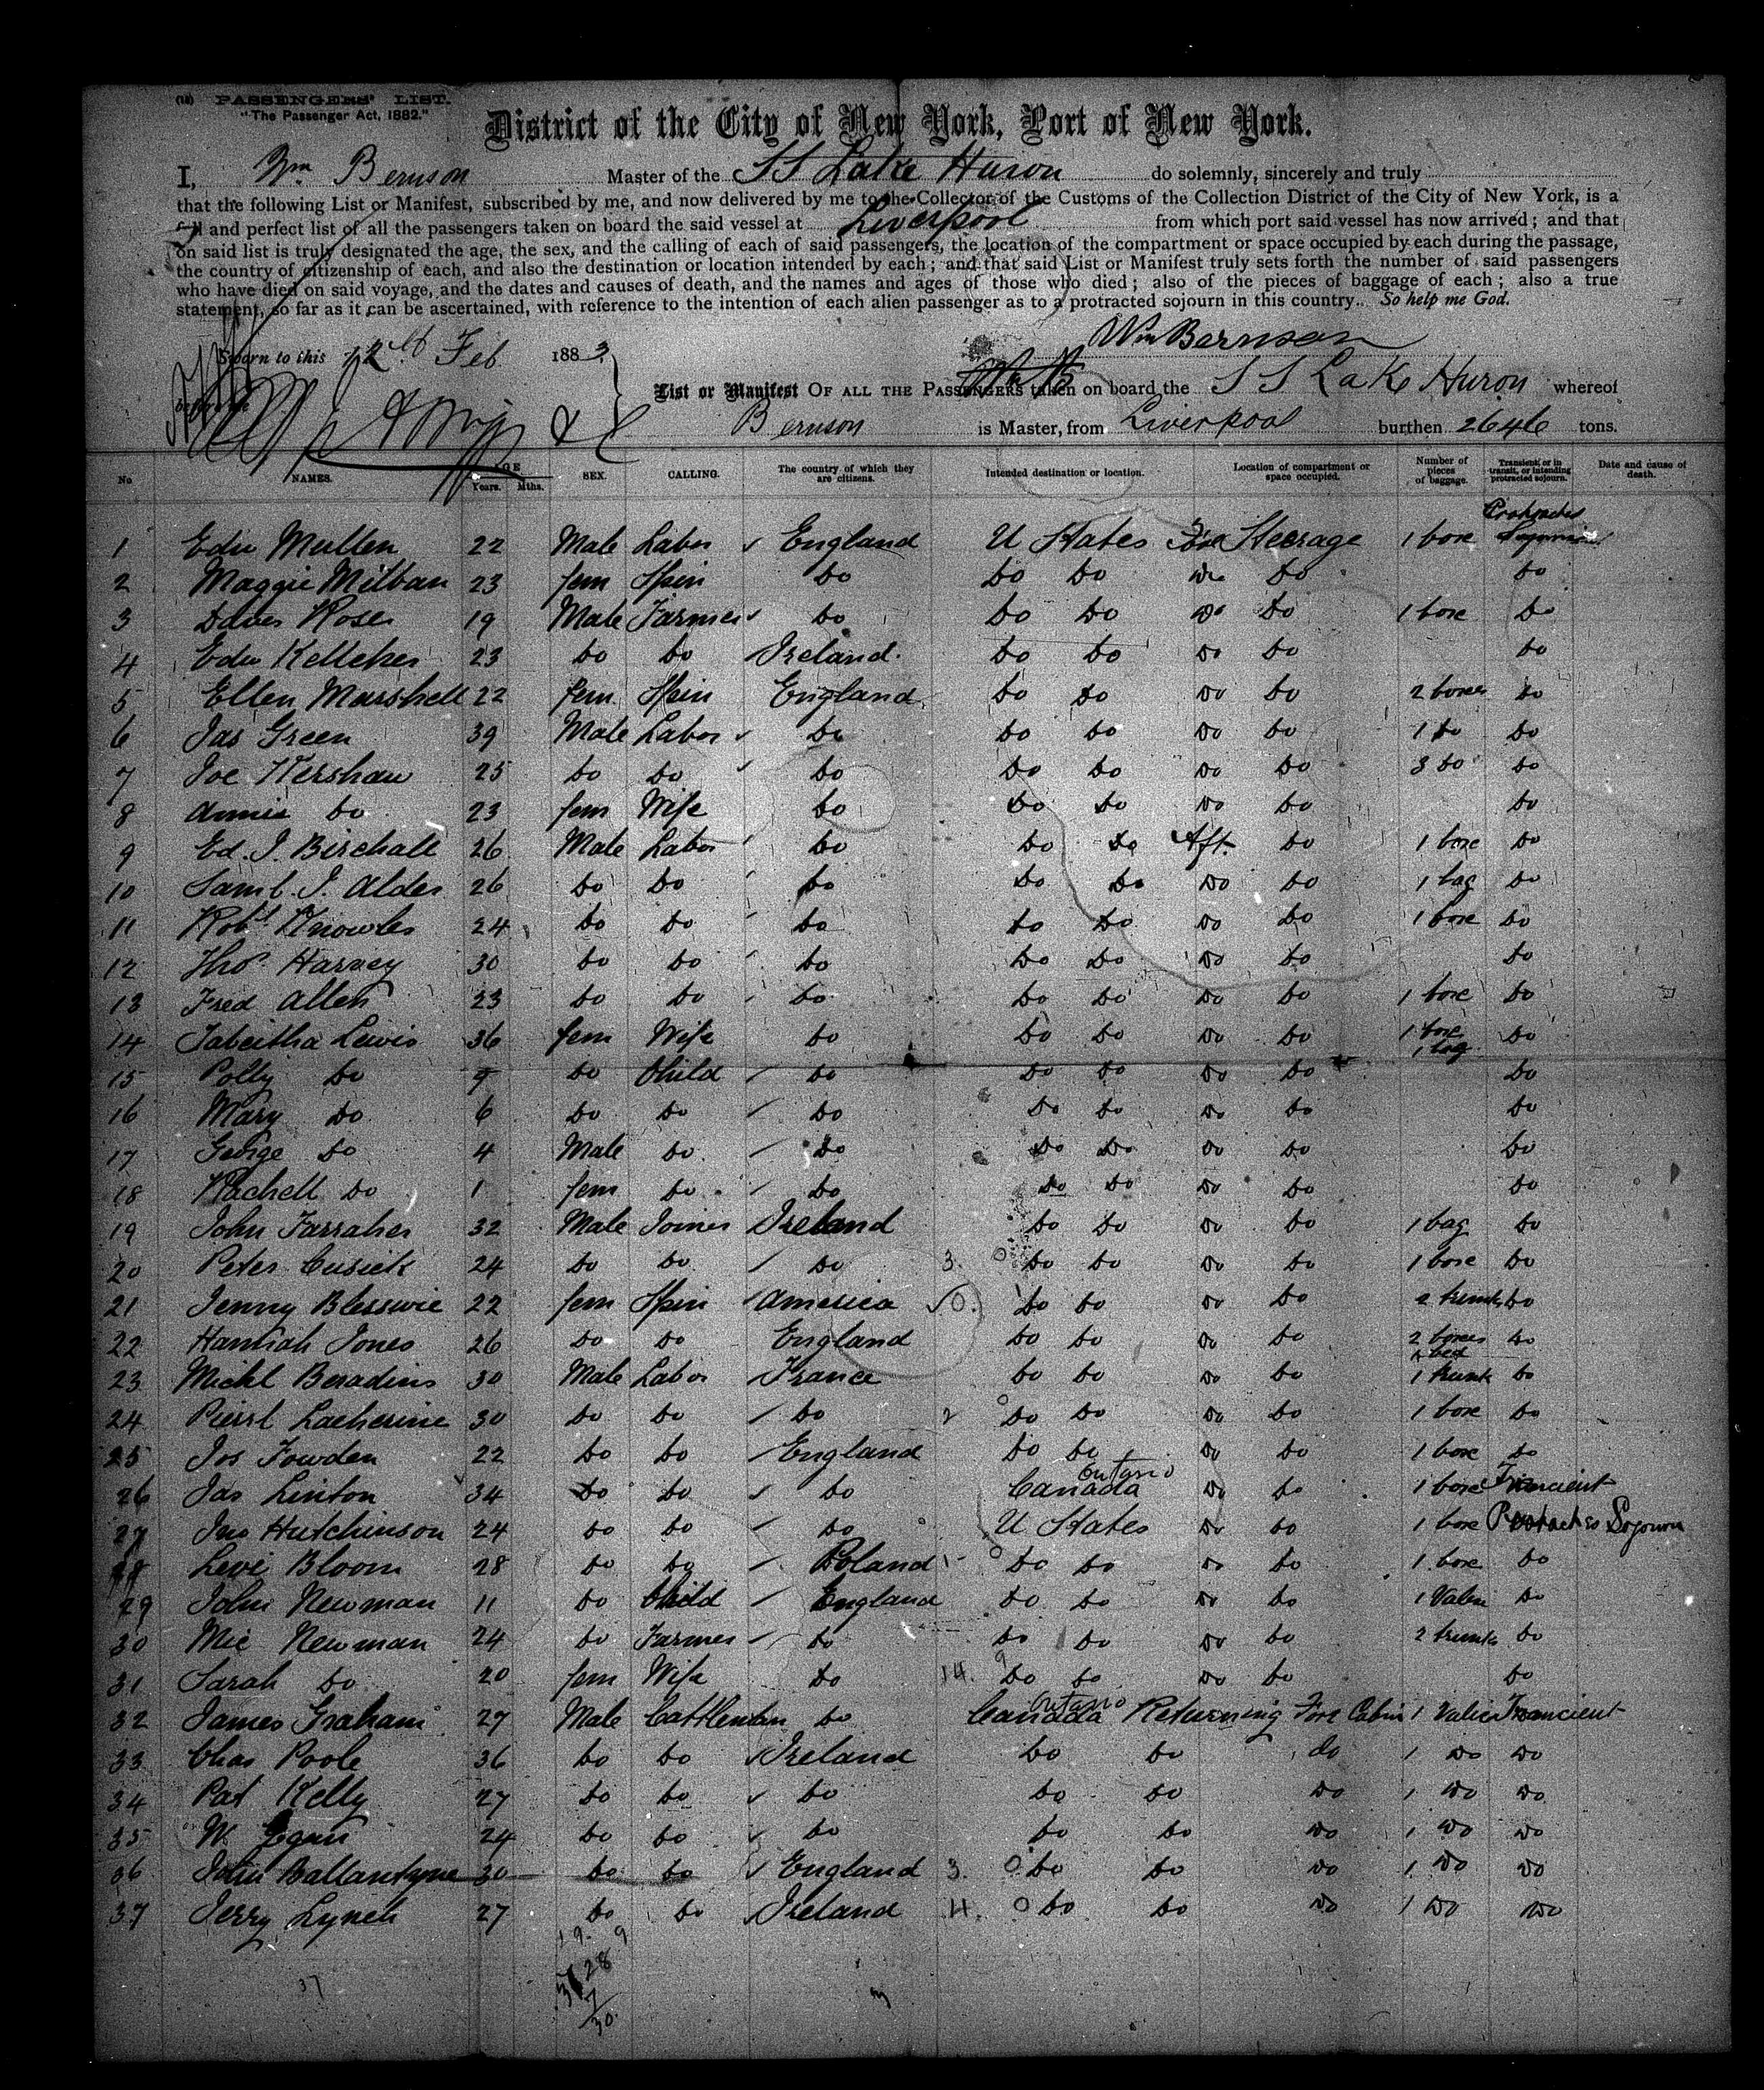 (18) PASSENGERS' LIST.
"The Passenger Act, 1882."
District of the City of New York, Port of New York.
I, Wm Bernson Master of the SS Lake Huron do solemnly, sincerely and truly
that the following List or Manifest, subscribed by me, and now delivered by me to the Collector of the Customs of the Collection District of the City of New York, is a
full and perfect list of all the passengers taken on board the said vessel at Liverpool from which port said vessel has now arrived; and that
on said list is truly designated the age, the sex, and the calling of each of said passengers, the location of the compartment or space occupied by each during the passage,
the country of citizenship of each, and also the destination or location intended by each; and that said List or Manifest truly sets forth the number of said passengers
who have died on said voyage, and the dates and causes of death, and the names and ages of those who died; also of the pieces of baggage of each; also a true
statement, so far as it can be ascertained, with reference to the intention of each alien passenger as to a protracted sojourn in this country. So help me God.
Wm Bernson
Sworn to this 12th Feb 1883
before me
List or Manifest OF ALL THE PASSENGERS taken on board the SS Lake Huron whereof
Bernson is Master, from Liverpool burthen 2646 tons.
No NAMES. AGE Years. Mths. SEX. CALLING. The country of which they are citizens. Intended destination or location. Location of compartment or space occupied. Number of pieces of baggage. Transient or in transit, or intending protracted sojourn. Date and cause of death.
1 Edw Mullen 22 Male Labor England U States Fore Steerage 1 box Protracted Sojourn
2 Maggie Milban 23 fem Spin do do do do do do
3 Davis Rose 19 Male Farmer do do do do do 1 box do
4 Edw Kelleher 23 do do Ireland. do do do do do
5 Ellen Marshell 22 fem. Spin England do do do do 2 boxes do
6 Jas Green 39 Male Labor do do do do do 1 do do
7 Joe Kershaw 25 do do do do do do do 3 do do
8 Annie do 23 fem Wife do do do do do do
9 Ed. J. Birchall 26 Male Labor do do do Aft. do 1 box do
10 Saml. J. Alder 26 do do do do do do do 1 bag do
11 Robt Knowles 24 do do do do do do do 1 box do
12 Thos. Harvey 30 do do do do do do do do
13 Fred Allen 23 do do do do do do do 1 box do
14 Tabeitha Lewis 36 fem Wife do do do do do 1 box 1 bag do
15 Polly do 9 do Child do do do do do do
16 Mary do 6 do do do do do do do do
17 George do 4 Male do. do do do do do do
18 Rachell do 1 fem do do do do do do do
19 John Farraher 32 Male Joiner Ireland do do do do 1 bag do
20 Peter Cusick 24 do do do 3. 0 do do do do 1 box do
21 Jenny Blesswie 22 fem Spin America 0. do do do do 2 trunks do
22 Hannah Jones 26 do do England do do do do 2 boxes 1 bed do
23 Michl Beradins 30 Male Labor France do do do do 1 trunk do
24 Pierrl Lacherine 30 do do do 2 0 do do do do 1 box do
25 Jos Fowden 22 do do England do do do do 1 box do
26 Jas Linton 34 do do do Canada Ontario do do 1 box Trancient
27 Jno Hutchinson 24 do do do U States do do 1 box Protracted Sojourn
28 Levi Bloom 28 do do Poland 1 0 do do do do 1 box do
29 John Newman 11 do Child England do do do do 1 Valise do
30 Mic Newman 24 do Farmer do do do do do 2 trunks do
31 Sarah do 20 fem Wife do 14. 9 do do do do do
32 James Graham 27 Male Cattleman do Canada Ontario Returning Fore Cabin 1 Valise Trancient
33 Chas Poole 36 do do Ireland do do do 1 do do
34 Pat Kelly 27 do do do do do do 1 do do
35 W Egan 24 do do do do do do 1 do do
36 John Ballantyne 30 do do England 3. 0 do do do 1 do do
37 Jerry Lynch 27 do do Ireland 4. 0 do do do 1 do do
19. 9
28
37
30